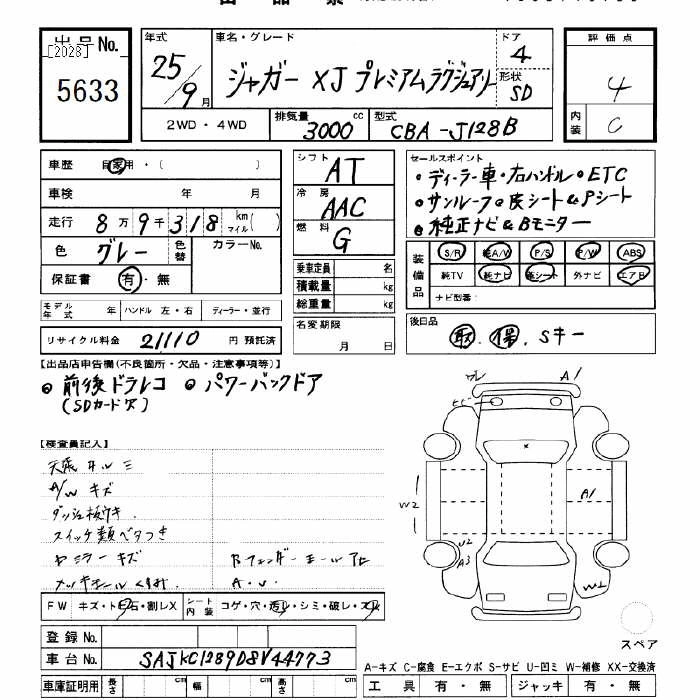 出品No.
[2028]
5633
年式
25/9月
車名・グレード
ジャガー XJ プレミアムラグジュアリー
ドア
4
形状
SD
2WD・4WD
排気量
3000cc
型式
CBA-J128B
評価点
4
内装
C
車歴 自家用・( )
車検 年 月
走行 8万9千318 km マイル( )
色 グレー 色替 カラーNo.
保証書 有・無
モデル年式 年 ハンドル 左・右 ディーラー・並行
リサイクル料金 21110 円 預託済
シフト
AT
冷房
AAC
燃料
G
乗車定員 名
積載量 kg
総重量 kg
名変期限
月 日
セールスポイント
・ディーラー車・右ハンドル・ETC
・サンルーフ・皮シート&Pシート
・純正ナビ&Bモニター
装備品
S/R 純A/V P/S P/W ABS
純TV 純ナビ 革シート 外ナビ エアB
ナビ型番:
後日品
取、保、Sキー
【出品店申告欄(不良箇所・欠品・注意事項等)】
・前後ドラレコ ・パワーバックドア
(SDカード欠)
【検査員記入】
A/W キズ
スイッチ類ベタつき
ミラーキズ
FW キズ・トビ石・割レX シート内装 コゲ・穴・汚レ・シミ・破レ・スレ
ワレ
A1
A1
W2
U2
A3
W1
スペア
登録No.
車台No. SAJKC1289D8V44773
A-キズ C-腐食 E-エクボ S-サビ U-凹ミ W-補修 XX-交換済
車庫証明用 長さ cm 幅 cm 高さ cm
工具 有・無 ジャッキ 有・無